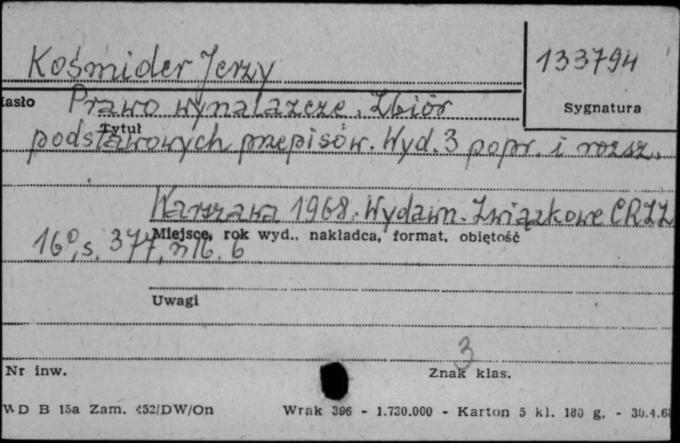 Kośmider Jerzy
133794
Hasło
Sygnatura
Prawo wynalazcze. Zbiór
Tytuł
podstawowych przepisów. Wyd. 3 popr. i rozsz.
Warszawa 1968. Wydawn. Związkowe CRZZ
Miejsce, rok wyd., nakładca, format, objętość
16°, s. 377, nlb. 6
Uwagi
3
Nr inw.
Znak klas.
WD B 15a Zam. 452/DW/On Wrak 396 - 1.730.000 - Karton 5 kl. 180 g. - 30.4.6